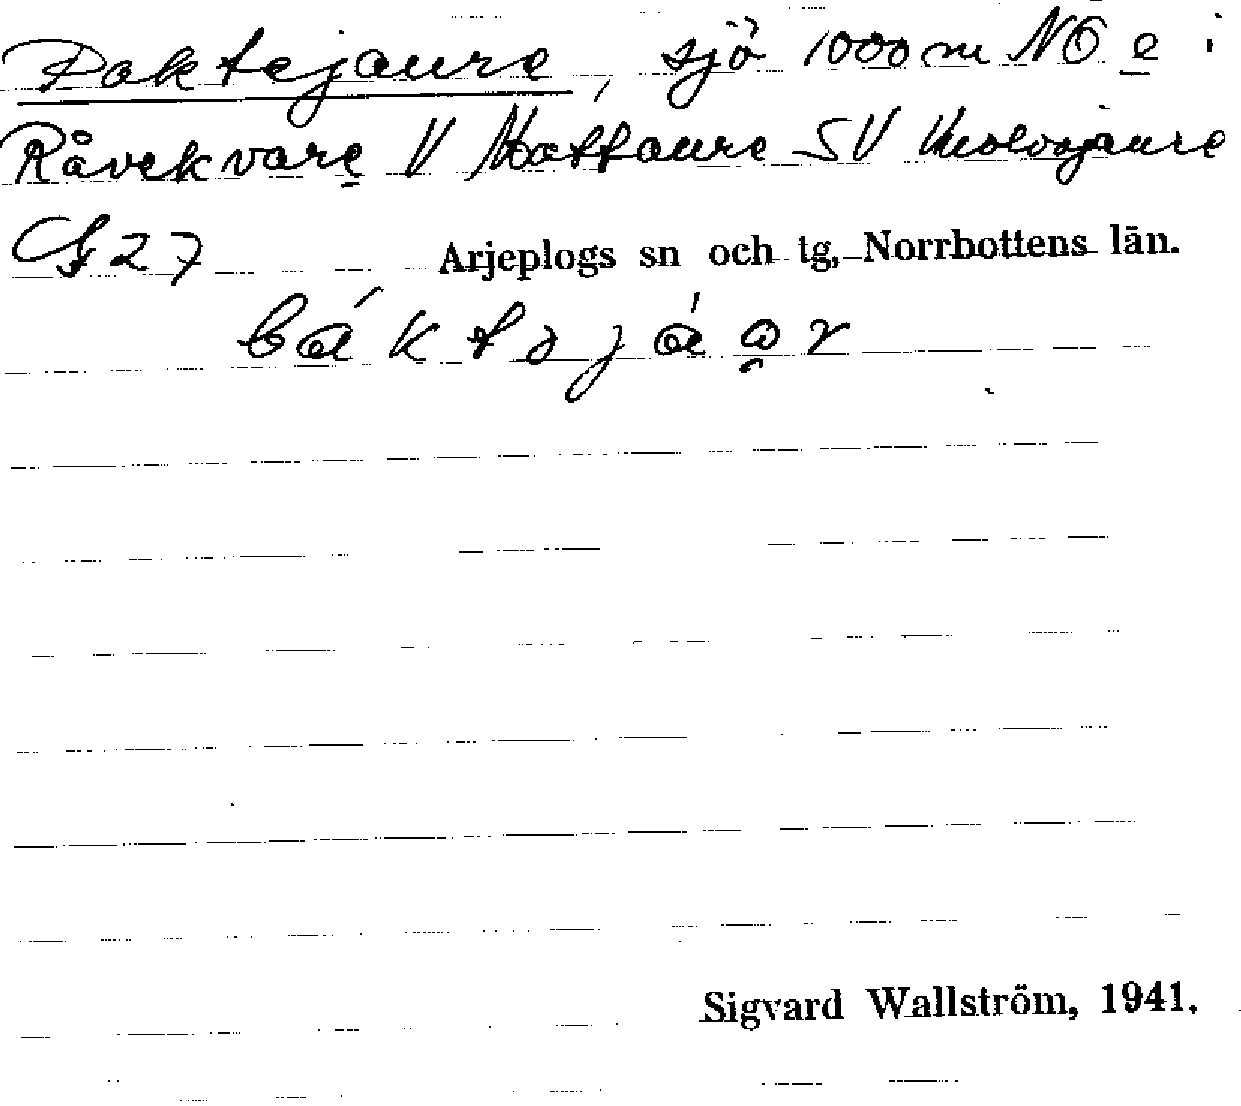 Paktejaure, sjö 1000 m NO e i
Råvekvare V Mattaure SV
G 27 Arjeplogs sn och tg, Norrbottens län.
Sigvard Wallström, 1941.